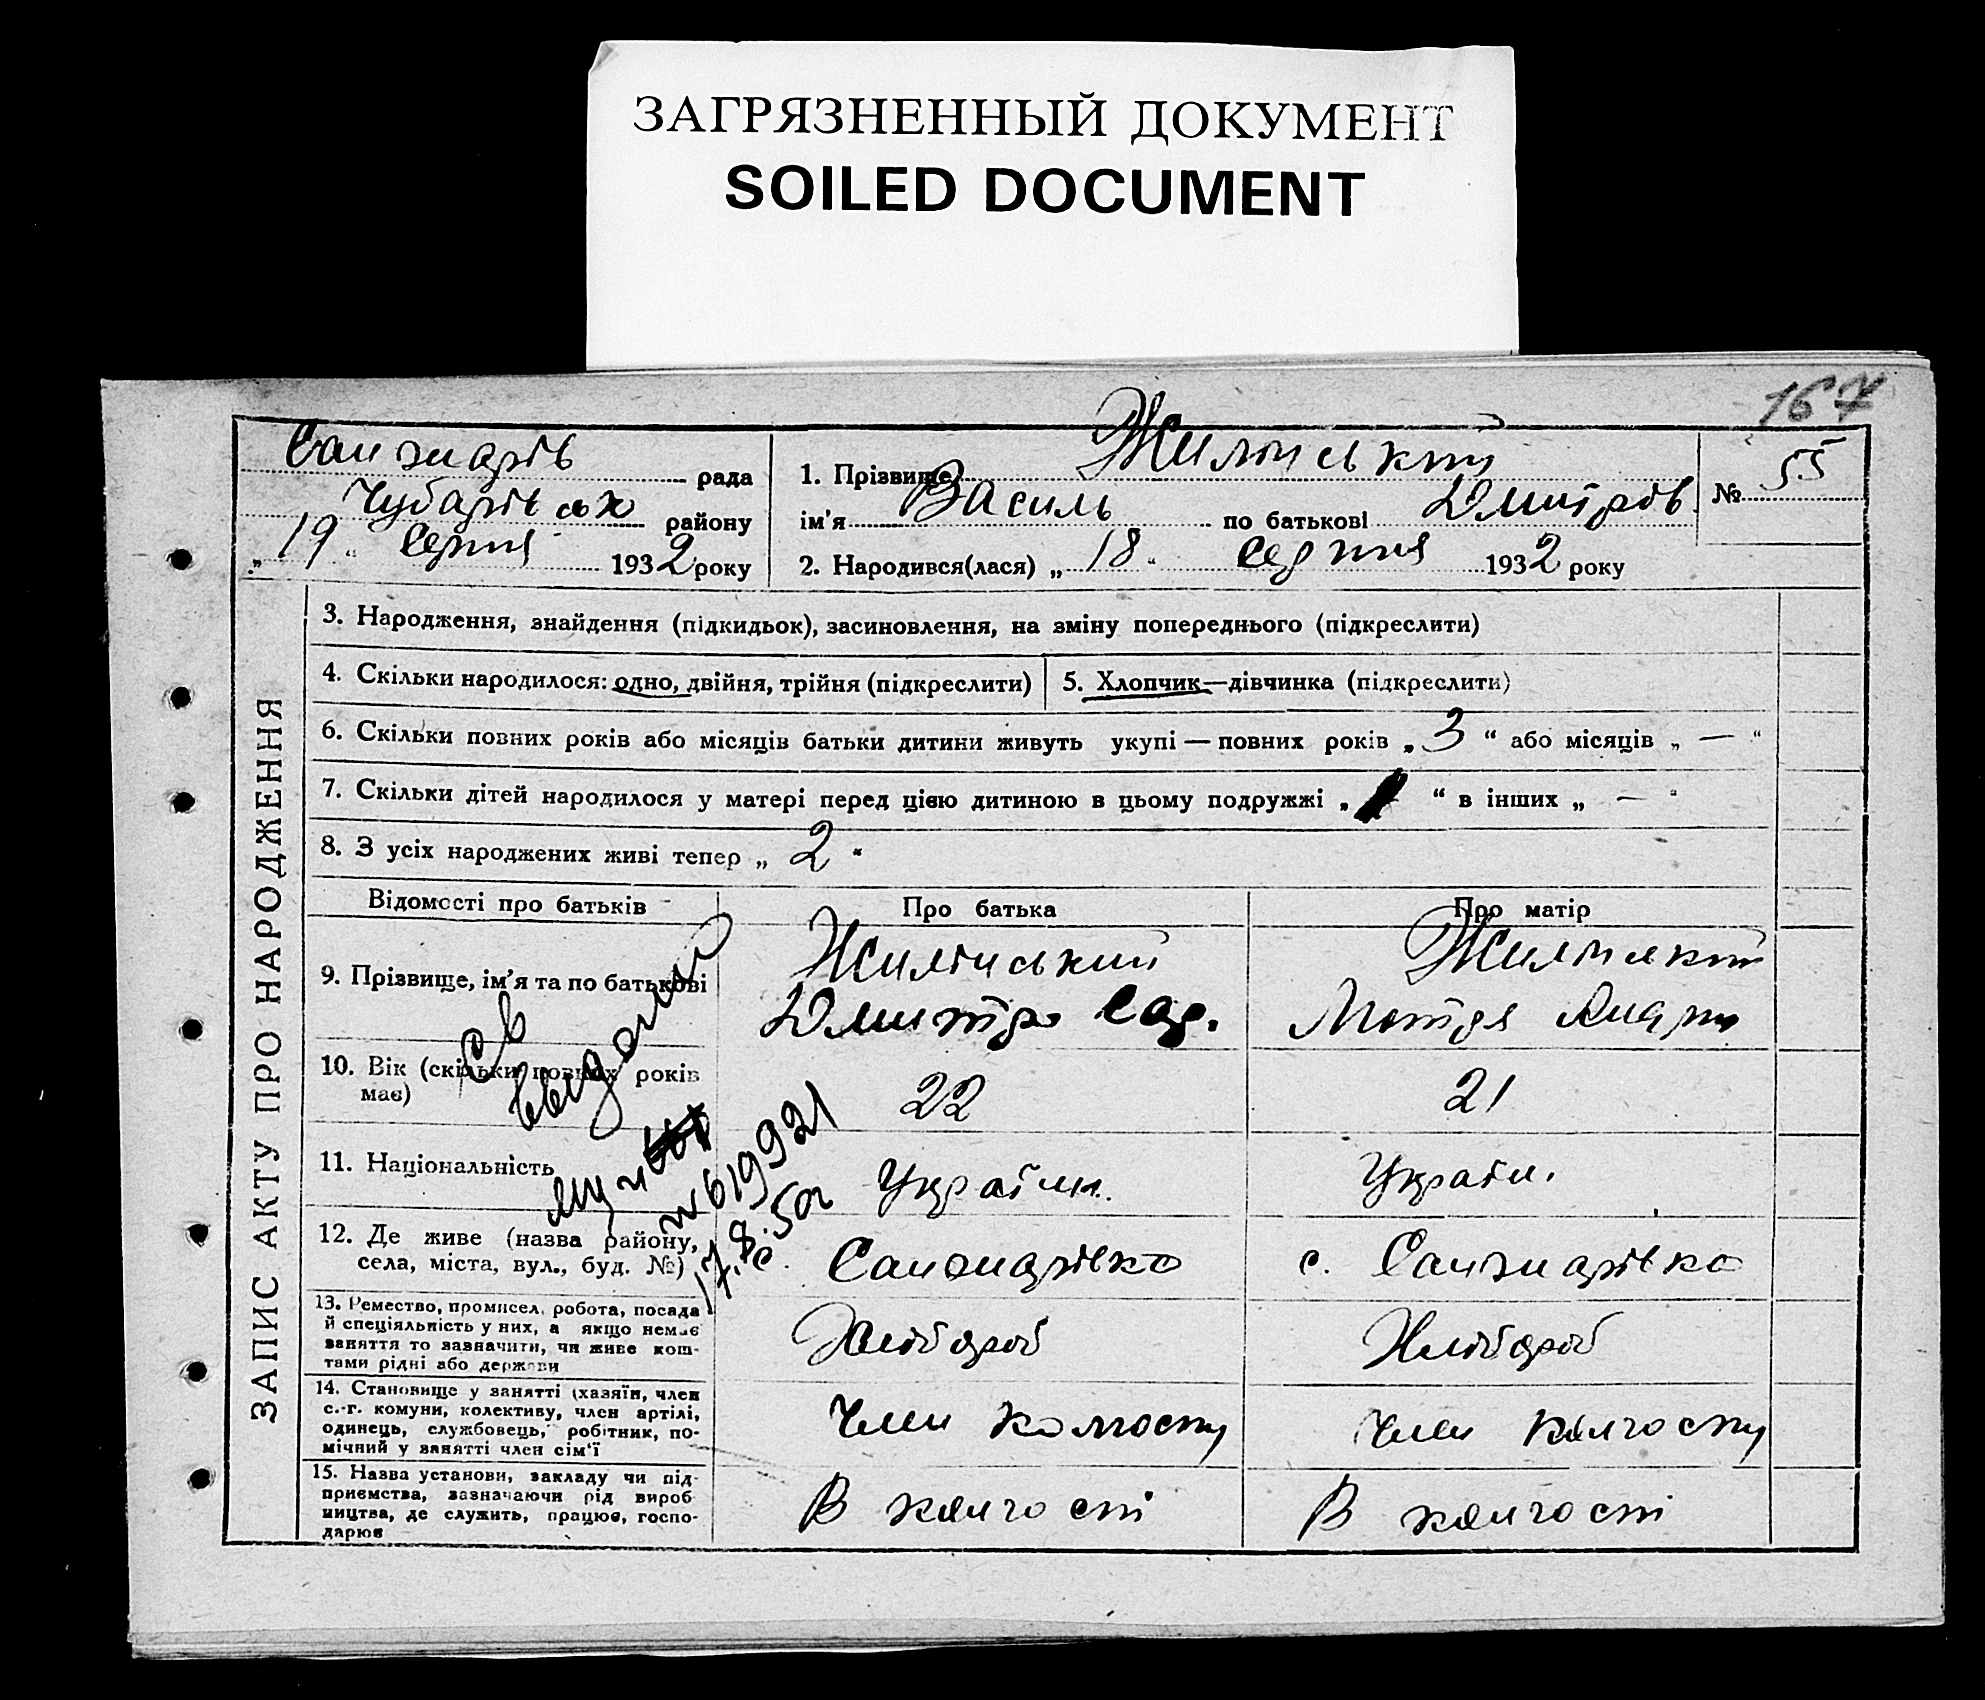 ЗАГРЯЗНЕННЫЙ ДОКУМЕНТ
SOILED DOCUMENT
167
Санжарів рада
Чубарівськ району
„ 19 “ Серпня 1932 року
1. Прізвище Жилінський
ім'я Василь по батькові Дмитров.
2. Народився(лася) „ 18 “ серпня 1932 року
№ 55
ЗАПИС АКТУ ПРО НАРОДЖЕННЯ
3. Народження, знайдення (підкидьок), засиновлення, на зміну попереднього (підкреслити)
4. Скільки народилося: одно, двійня, трійня (підкреслити)
5. Хлопчик—дівчинка (підкреслити)
6. Скільки повних років або місяців батьки дитини живуть укупі — повних років „ 3 “ або місяців „ — “
7. Скільки дітей народилося у матері перед цією дитиною в цьому подружжі „ “ в інших „ — “
8. З усіх народжених живі тепер „ 2 “
Відомості про батьків
Про батька
Про матір
9. Прізвище, ім'я та по батькові
Жилінський
Дмитро
Жилінський
Мотря
Св
выдано
№ 619921
17.8.50г
10. Вік (скільки повних років
має)
22
21
11. Національність
Україн.
Україн.
12. Де живе (назва району,
села, міста, вул., буд. №)
с. Санжарівка
с. Санжарівка
13. Ремество, промисел, робота, посада
й спеціяльність у них, а якщо немає
заняття то зазначити, чи живе кош-
тами рідні або держави
Хлібороб
Хлібороб
14. Становище у занятті (хазяїн, член
с.-г. комуни, колективу, член артілі,
одинець, службовець, робітник, по-
мічний у занятті член сім'ї
Член колгоспу
Член колгоспу
15. Назва установи, закладу чи під-
приємства, зазначаючи рід вироб
ництва, де служить, працює, госпо-
дарює
В колгості
В колгості